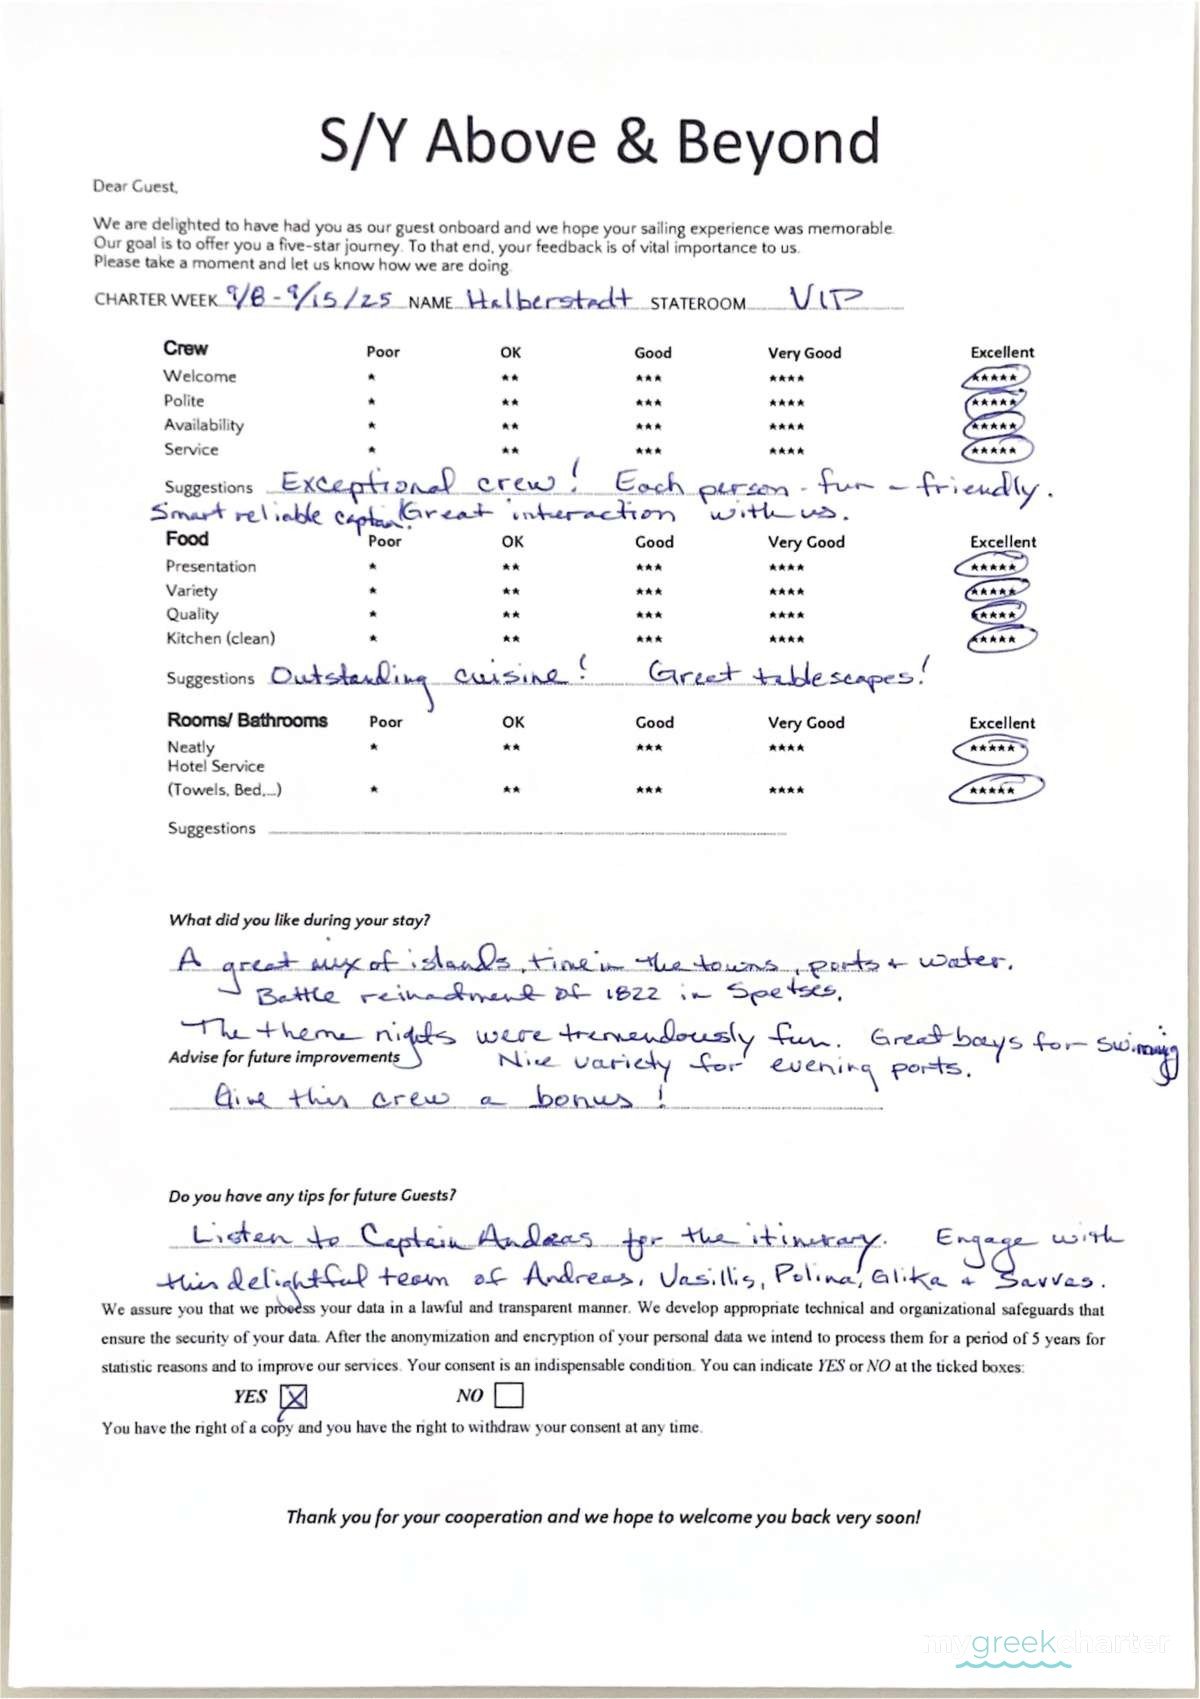 S/Y Above & Beyond
Dear Guest,
We are delighted to have had you as our guest onboard and we hope your sailing experience was memorable.
Our goal is to offer you a five-star journey. To that end, your feedback is of vital importance to us.
Please take a moment and let us know how we are doing.
CHARTER WEEK 9/8 - 9/15/25 NAME Halberstadt STATEROOM VIP
Crew Poor OK Good Very Good Excellent
Welcome * ** *** **** *****
Polite * ** *** **** *****
Availability * ** *** **** *****
Service * ** *** **** *****
Suggestions Exceptional crew! Each person - fun - friendly.
Smart reliable captain! Great interaction with us.
Food Poor OK Good Very Good Excellent
Presentation * ** *** **** *****
Variety * ** *** **** *****
Quality * ** *** **** *****
Kitchen (clean) * ** *** **** *****
Suggestions Outstanding cuisine! Great tablescapes!
Rooms/ Bathrooms Poor OK Good Very Good Excellent
Neatly * ** *** **** *****
Hotel Service
(Towels, Bed,...) * ** *** **** *****
Suggestions
What did you like during your stay?
A great mix of islands, time in the towns, ports + water.
Battle reinactment of 1822 in Spetses.
The theme nights were tremendously fun. Great bays for swimming
Advise for future improvements Nice variety for evening ports.
Give this crew a bonus!
Do you have any tips for future Guests?
Listen to Captain Andreas for the itinerary. Engage with
this delightful team of Andreas, Vasillis, Polina, Glika + Savvas.
We assure you that we process your data in a lawful and transparent manner. We develop appropriate technical and organizational safeguards that
ensure the security of your data. After the anonymization and encryption of your personal data we intend to process them for a period of 5 years for
statistic reasons and to improve our services. Your consent is an indispensable condition. You can indicate YES or NO at the ticked boxes:
YES ☒ NO ☐
You have the right of a copy and you have the right to withdraw your consent at any time.
Thank you for your cooperation and we hope to welcome you back very soon!
mygreekcharter